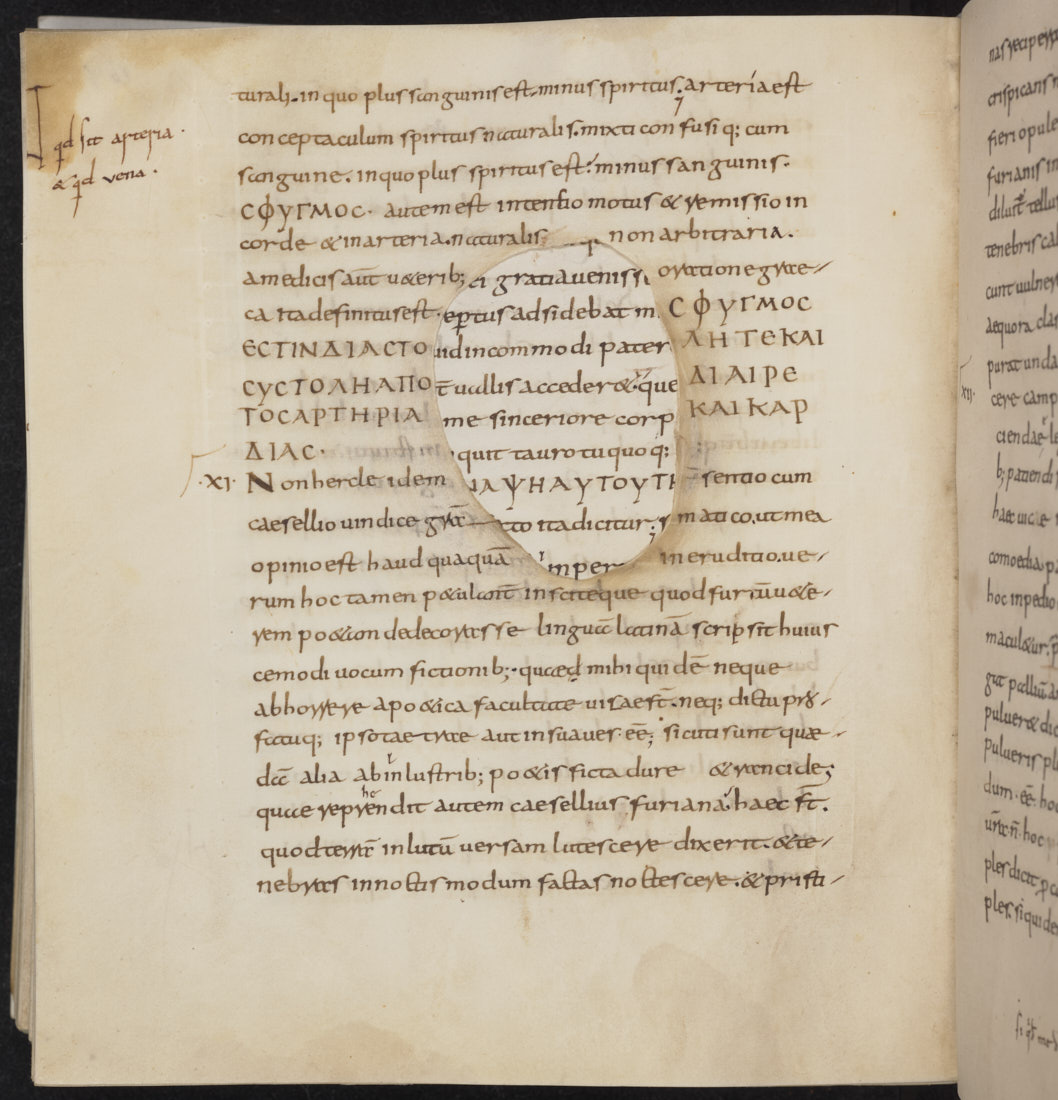 qd sit arteria ·
& qd vena ·
turali. in quo plus sanguinis est. minus spiritus; arteria est
conceptaculum spiritus naturalis. mixti confusiq; cum
sanguine. in quo plus spiritus est; minus sanguinis.
CΦΥΓΜΟC· autem est intentio motus & remissio in
corde & in arteria. naturalis non arbitraria.
a medicis aut̄ u&erib; gratia uenissē oratione gre-
ca ita definitus est. ertus adsidebat in CΦΥΓΜΟC
ΕCΤΙΝ ΔΙΑCΤΟ id incommodi pater ΛΗ ΤΕ ΚΑΙ
CΥCΤΟΛΗ ΑΠΟ t̄ uallis acceder& que ΔΙΑΙΡΕ
ΤΟC ΑΡΤΗΡΙΑ me sinceriore corp ΚΑΙ ΚΑΡ
ΔΙΑC· quit tauro tu quoq;
·XI· Non hercle idem ΨΗ ΑΥΤΟΥ sentio cum
caesellio uindice gra ita dicitur; matico. ut mea
opinio est haud quaquā inper ineruditio. ue-
rum hoc tamen p&ulant̄ insciteque quod furiū u&e-
rem po&am dedecorasse linguā latinā scripsit huius
cemodi uocum fictionib; quae mihi quidē neque
abhorrere a po&ica facultate uisae st̄. neq; dictu
factuq; ipso taetrae aut insuaues eē; sicuti sunt quae-
dā alia ab inlustrib; po&is ficta dure & rancide;
quae reprehendit autem caesellius furiana haec st̄.
quod terrā in lutū uersam lutescere dixerit. & te-
nebras in noctis modum factas noctescere. & pristi-